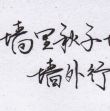 墙里秋千
墙外行